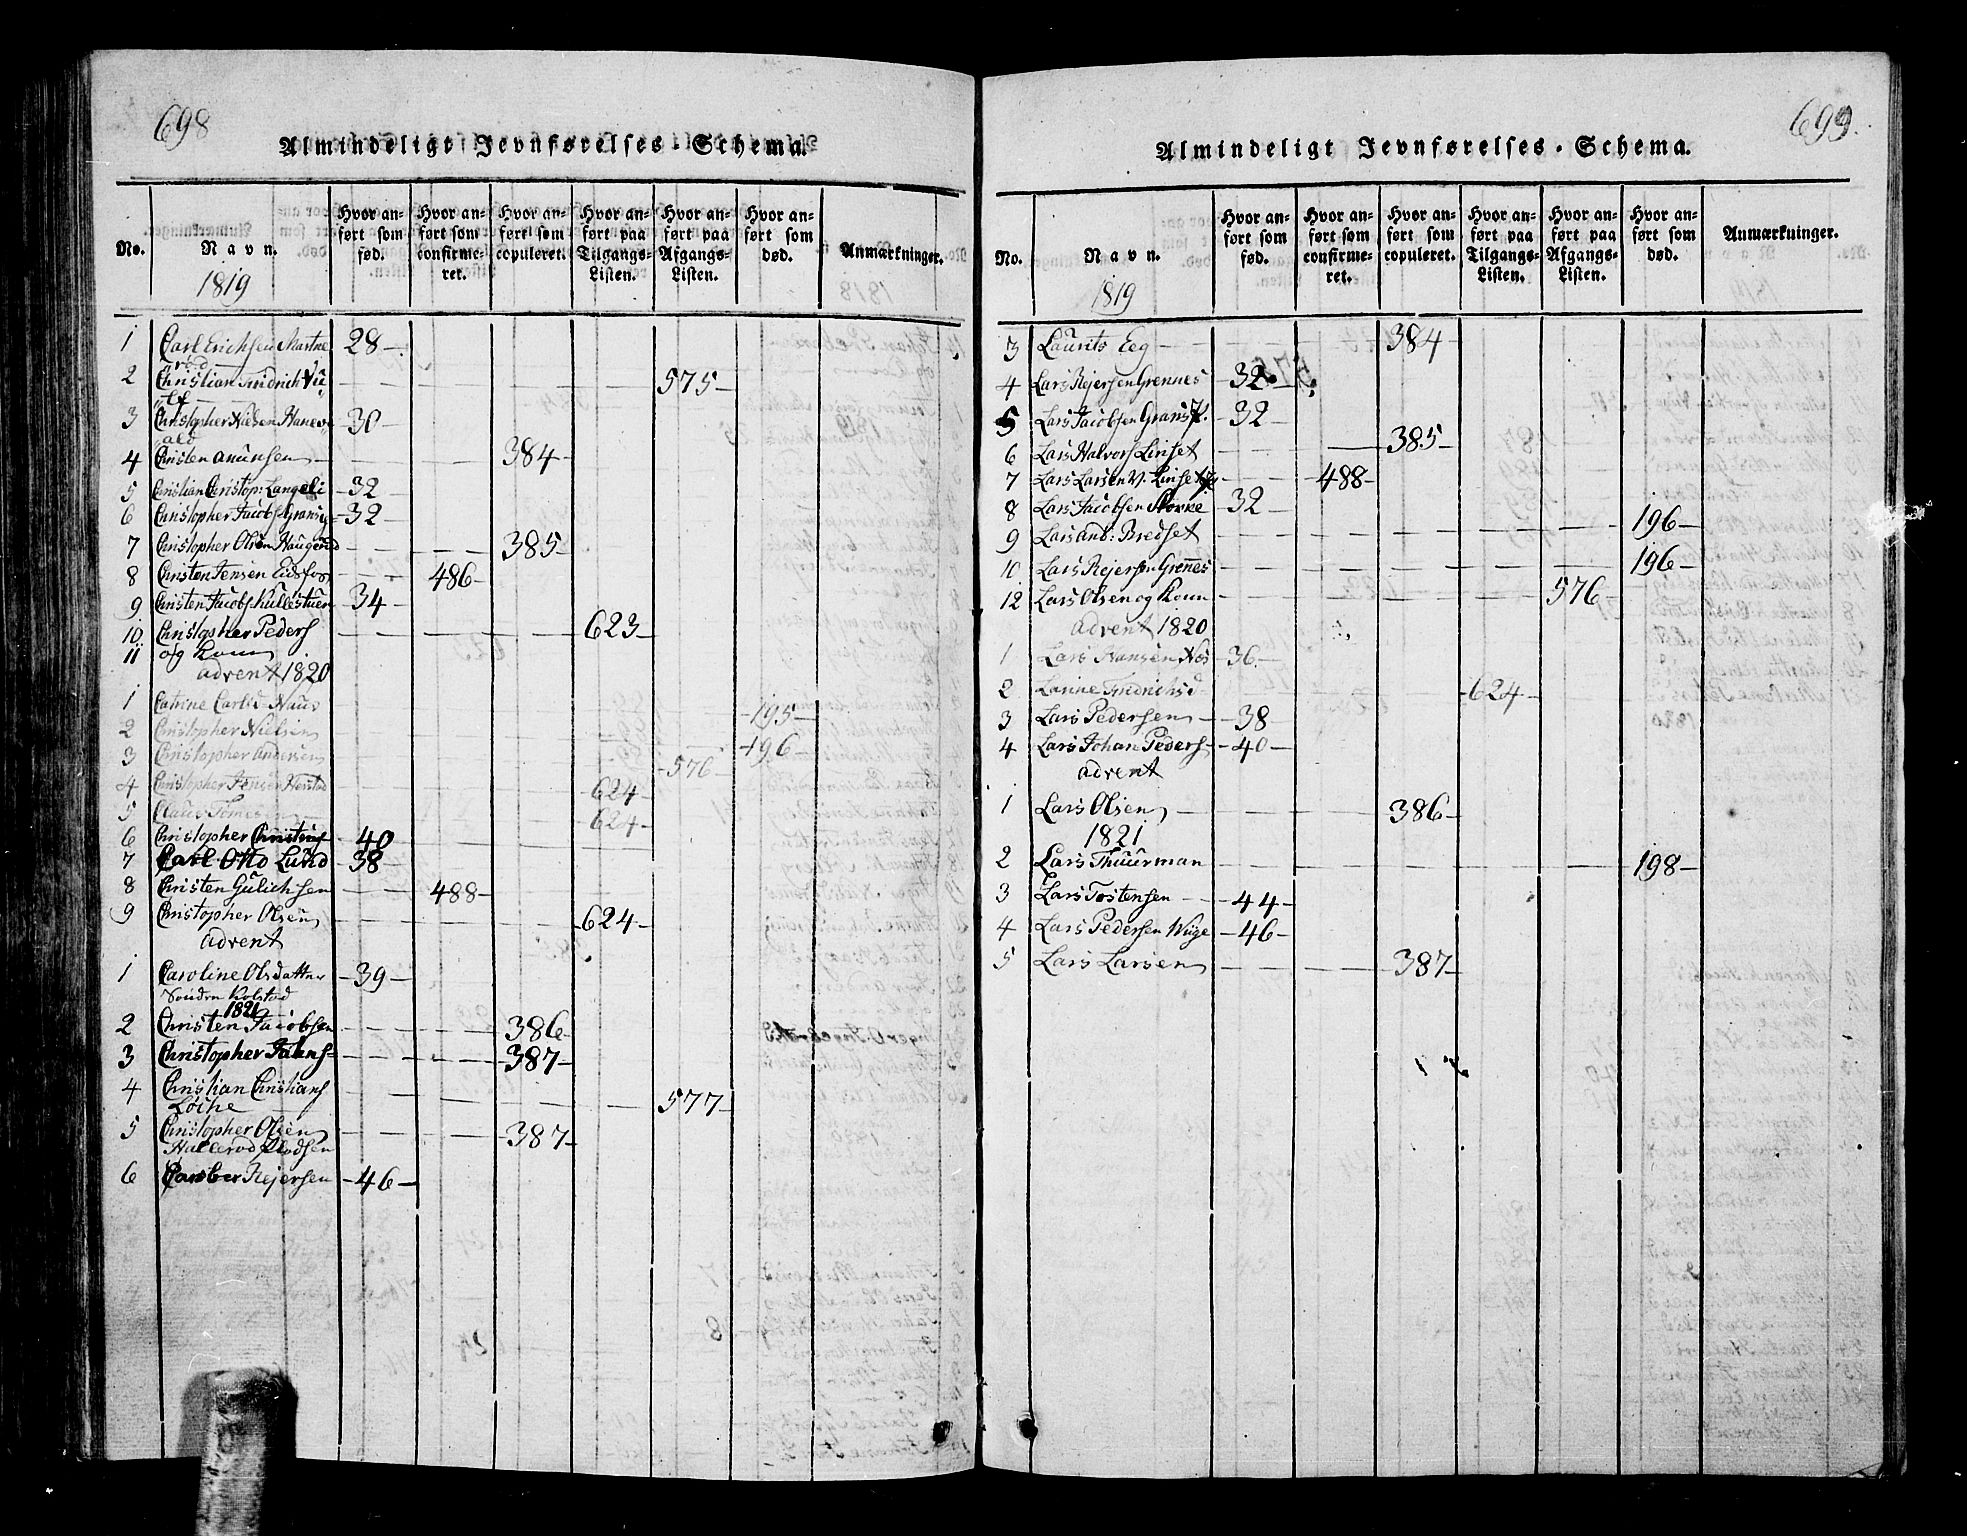 698
Almindeligt Jevnførelses-Schema.
No.
Navn.
1819
Hvor anført som fød.
Hvor anført som confirmeret.
Hvor anført som copuleret.
Hvor anført paa Tilgangs-Listen.
Hvor anført paa Afgangs-Listen.
Hvor anført som død.
Anmærkninger.
1 Carl Erichsen 28
2 Christian Fridrich 575
3 Christopher Nielsen 30
4 Christen Amunsen 384
5 Christian Christop: Langeli 32
6 Christopher Jacobs 32
7 Christopher Olsen Haugerud 385
8 Christen Jensen Eidsfos 486
9 Christen Jacobs. 34
10 Christopher Peders 623
11 og Kone
advent 1820
1 Catrine Carlsd 195
2 Christopher Nielsen 196
3 Christopher Andersen 576
4 Christopher Jensen 624
5 Claus 624
6 Christopher Christens 40
7 Carl Otto Lund 38
8 Christen Gulichsen 488
9 Christopher Olsen 624
advent
1 Caroline Olsdatter 39
Kolstad
1821
2 Christen Jacobsen 386
3 Christopher 387
4 Christian Christians 577
5 Christopher Olsen 387
6 Rejersen 46
699.
Almindeligt Jevnførelses-Schema.
No.
Navn.
1819
Hvor anført som fød.
Hvor anført som confirmeret.
Hvor anført som copuleret.
Hvor anført paa Tilgangs-Listen.
Hvor anført paa Afgangs-Listen.
Hvor anført som død.
Anmærkninger.
3 Laurits Eeg 384
4 Lars Rejersen Grennes 32
5 Lars Jacobsen 32
6 Lars Halvors Linset 385
7 Lars Larsen 488
8 Lars Jacobsen 32
9 Lars And: Bredset 196
10 Lars Rejersen Grenes 196
12 Lars Olsen og Kone 576
advent 1820
1 Lars Hansen 36
2 Larine Fridrichsd 624
3 Lars Pedersen 38
4 Lars Johan Peders 40
advent
1 Lars Olsen 386
1821
2 Lars Thuurman 198
3 Lars Tostensen 44
4 Lars Pedersen Wiige 46
5 Lars Larsen 387